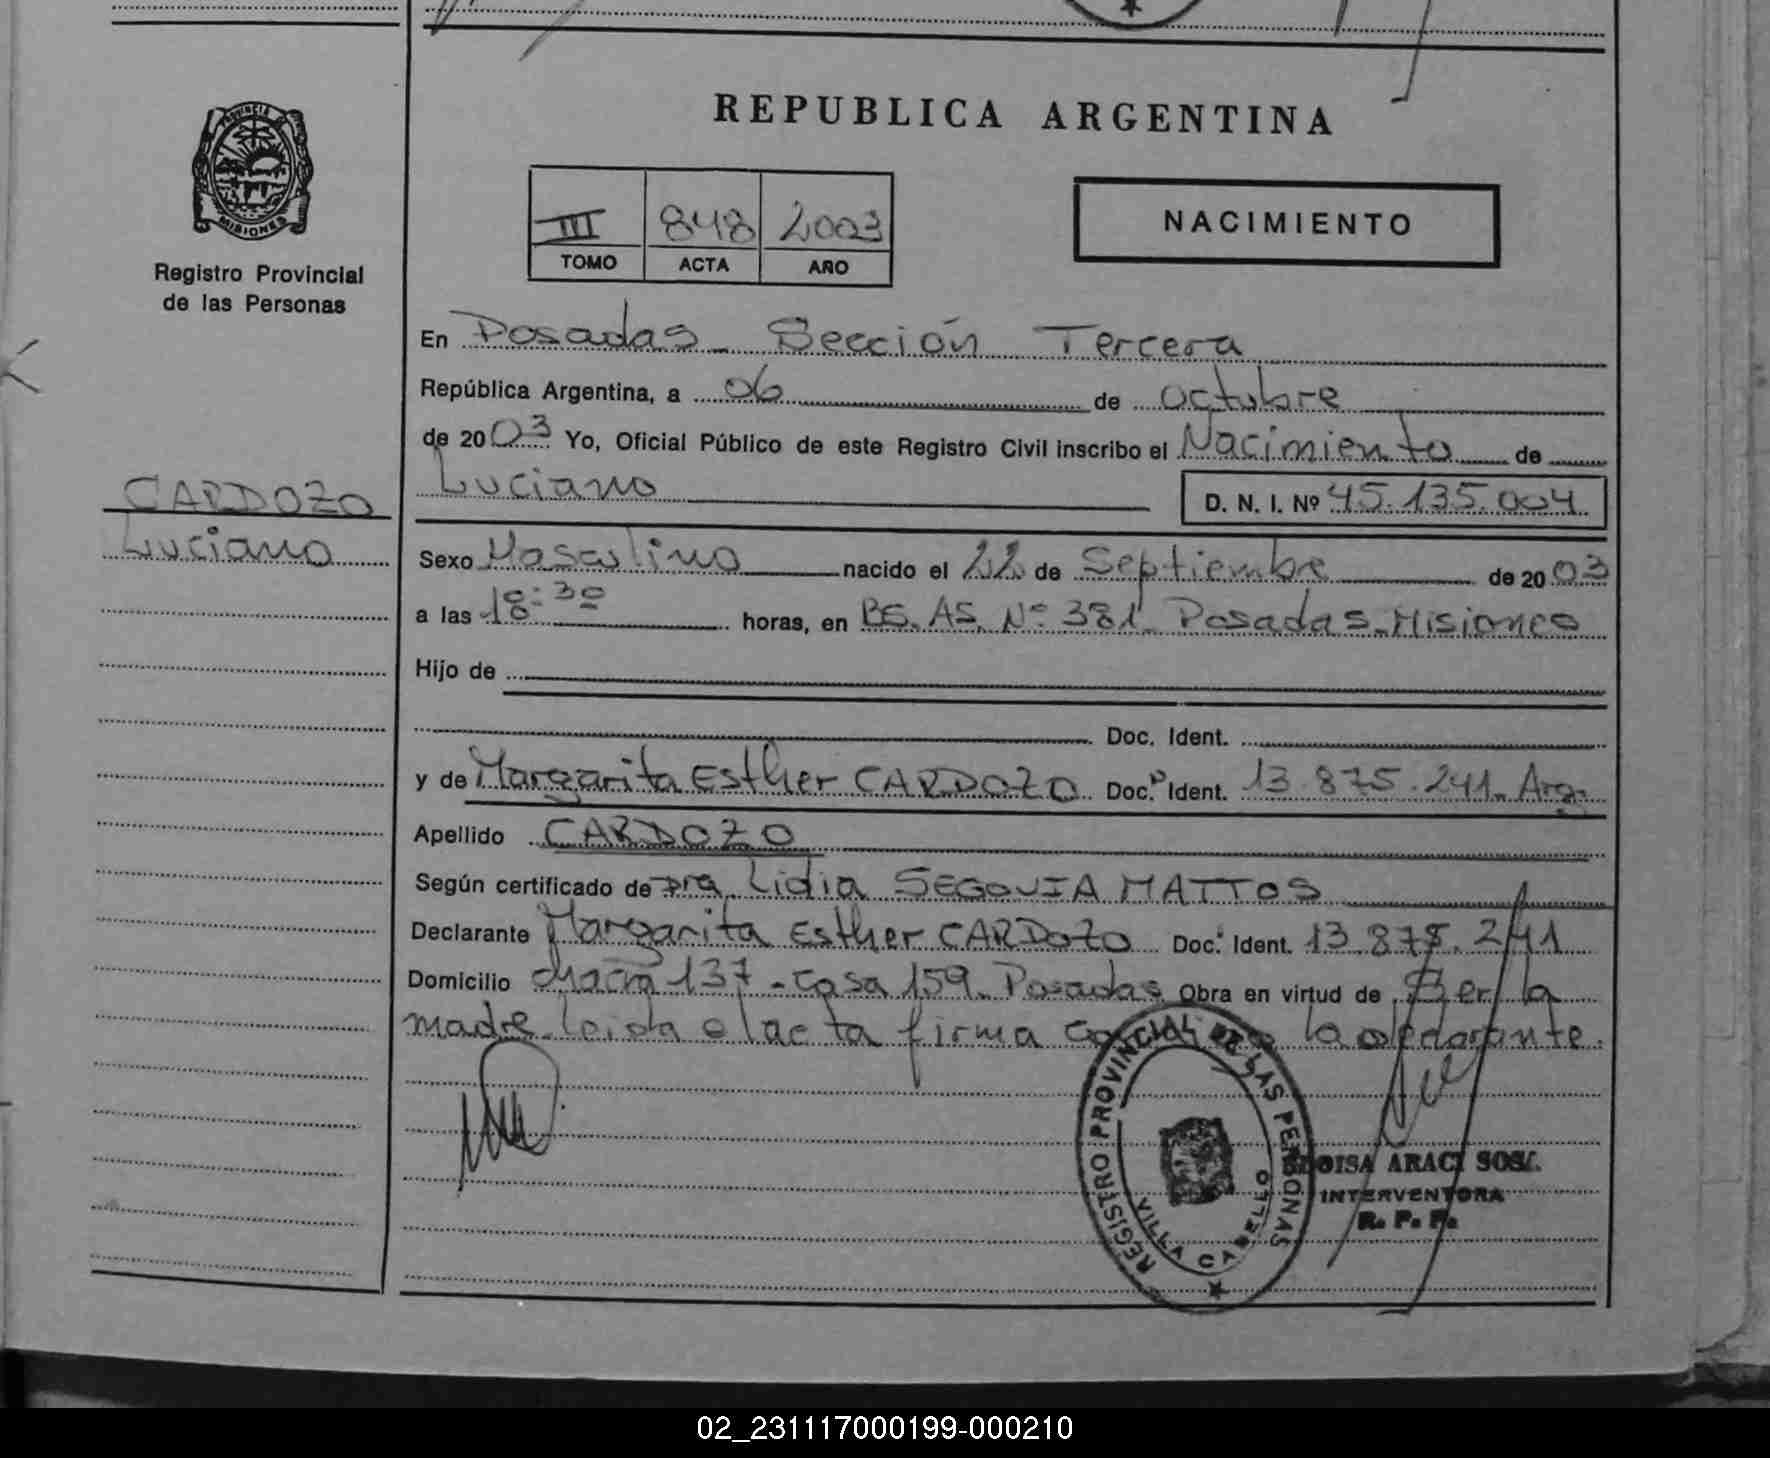 PROVINCIA DE
MISIONES
Registro Provincial
de las Personas
CARDOZO
Luciano
REPUBLICA ARGENTINA
III 848 2003
TOMO ACTA AÑO
NACIMIENTO
En Posadas - Sección Tercera
República Argentina, a 06 de octubre
de 2003 Yo, Oficial Público de este Registro Civil inscribo el Nacimiento de
Luciano D. N. I. Nº 45.135.004
Sexo Masculino nacido el 22 de Septiembre de 2003
a las 18:30 horas, en BS. AS. Nº 381 Posadas - Misiones
Hijo de
Doc. Ident.
y de Margarita Esther CARDOZO Doc. Ident. 13.875.241 - Arg.
Apellido CARDOZO
Según certificado de Dra Lidia SEGOVIA MATTOS
Declarante Margarita Esther CARDOZO Doc. Ident. 13.875.241
Domicilio Chacra 137 - Casa 159 - Posadas Obra en virtud de Ser la
madre - Leida el acta firma la declarante.
REGISTRO PROVINCIAL DE LAS PERSONAS
VILLA CABELLO
ARACI
INTERVENTORA
R. P. P.
02_231117000199-000210